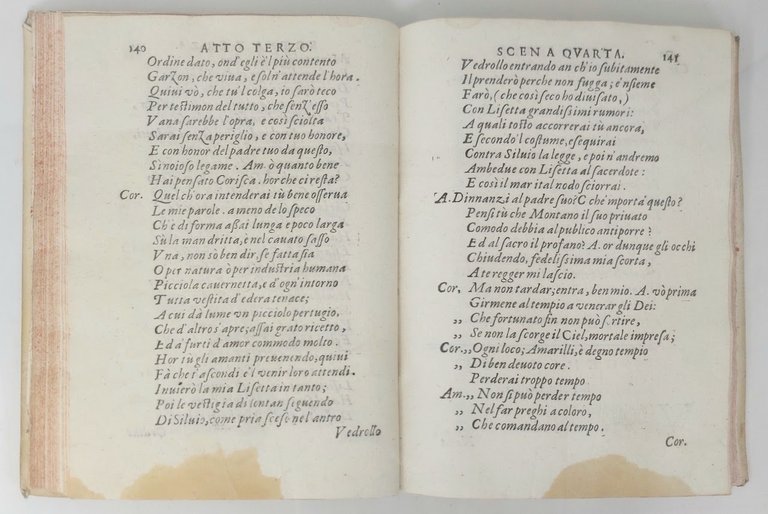 140 ATTO TERZO.
Ordine dato, ond'egli è'l più contento
Garzon, che viua, e sol n'attende l'hora.
Quiui vò, che tu'l colga, io sarò teco
Per testimon del tutto, che senz'esso
Vana sarebbe l'opra, e così sciolta
Sarai senza periglio, e con tuo honore,
E con honor del padre tuo da questo,
Sì noioso legame. Am. ò quanto bene
Hai pensato Corisca. hor che ci resta?
Cor. Quel ch'ora intenderai tù bene osserua
Le mie parole. a meno de lo speco
Ch'è di forma assai lunga e poco larga
Sù la man dritta, è nel cauato sasso
Vna, non sò ben dir, se fatta sia
O per natura ò per industria humana
Picciola cauernetta, e d'ogn'intorno
Tutta vestita d'edera tenace;
A cui dà lume vn picciolo pertugio,
Che d'alto s'apre; assai grato ricetto,
Ed a' furti d'amor commodo molto.
Hor tù gli amanti preuenendo, quiui
Fà che t'ascondi e'l venir loro attendi.
Inuierò la mia Lisetta in tanto;
Poi le vestigia di lontan seguendo
Di Siluio, come pria sceso nel antro
Vedrollo
SCENA QVARTA. 141
Vedrollo entrando anch'io subitamente
Il prenderò perche non fugga; e'nsieme
Farò, (che così seco ho diuisato,)
Con Lisetta grandissimi rumori:
A quali tosto accorrerai tù ancora,
E secondo'l costume, esequirai
Contra Siluio la legge, e poi n'andremo
Ambedue con Lisetta al sacerdote:
E così il marital nodo sciorrai.
A. Dinnanzi al padre suo? C che'mporta questo?
Pensi tù che Montano il suo priuato
Comodo debbia al publico antiporre?
Ed al sacro il profano? A. or dunque gli occhi
Chiudendo, fedelissima mia scorta,
A te regger mi lascio.
Cor, Ma non tardar; entra, ben mio. A. vò prima
Girmene al tempio a venerar gli Dei:
,, Che fortunato fin non può sortire,
,, Se non la scorge il Ciel, mortale impresa;
Cor.,, Ogni loco; Amarilli, è degno tempio
,, Di ben deuoto core.
Perderai troppo tempo
Am.,, Non si può perder tempo
,, Nel far preghi a coloro,
,, Che comandano al tempo.
Cor.